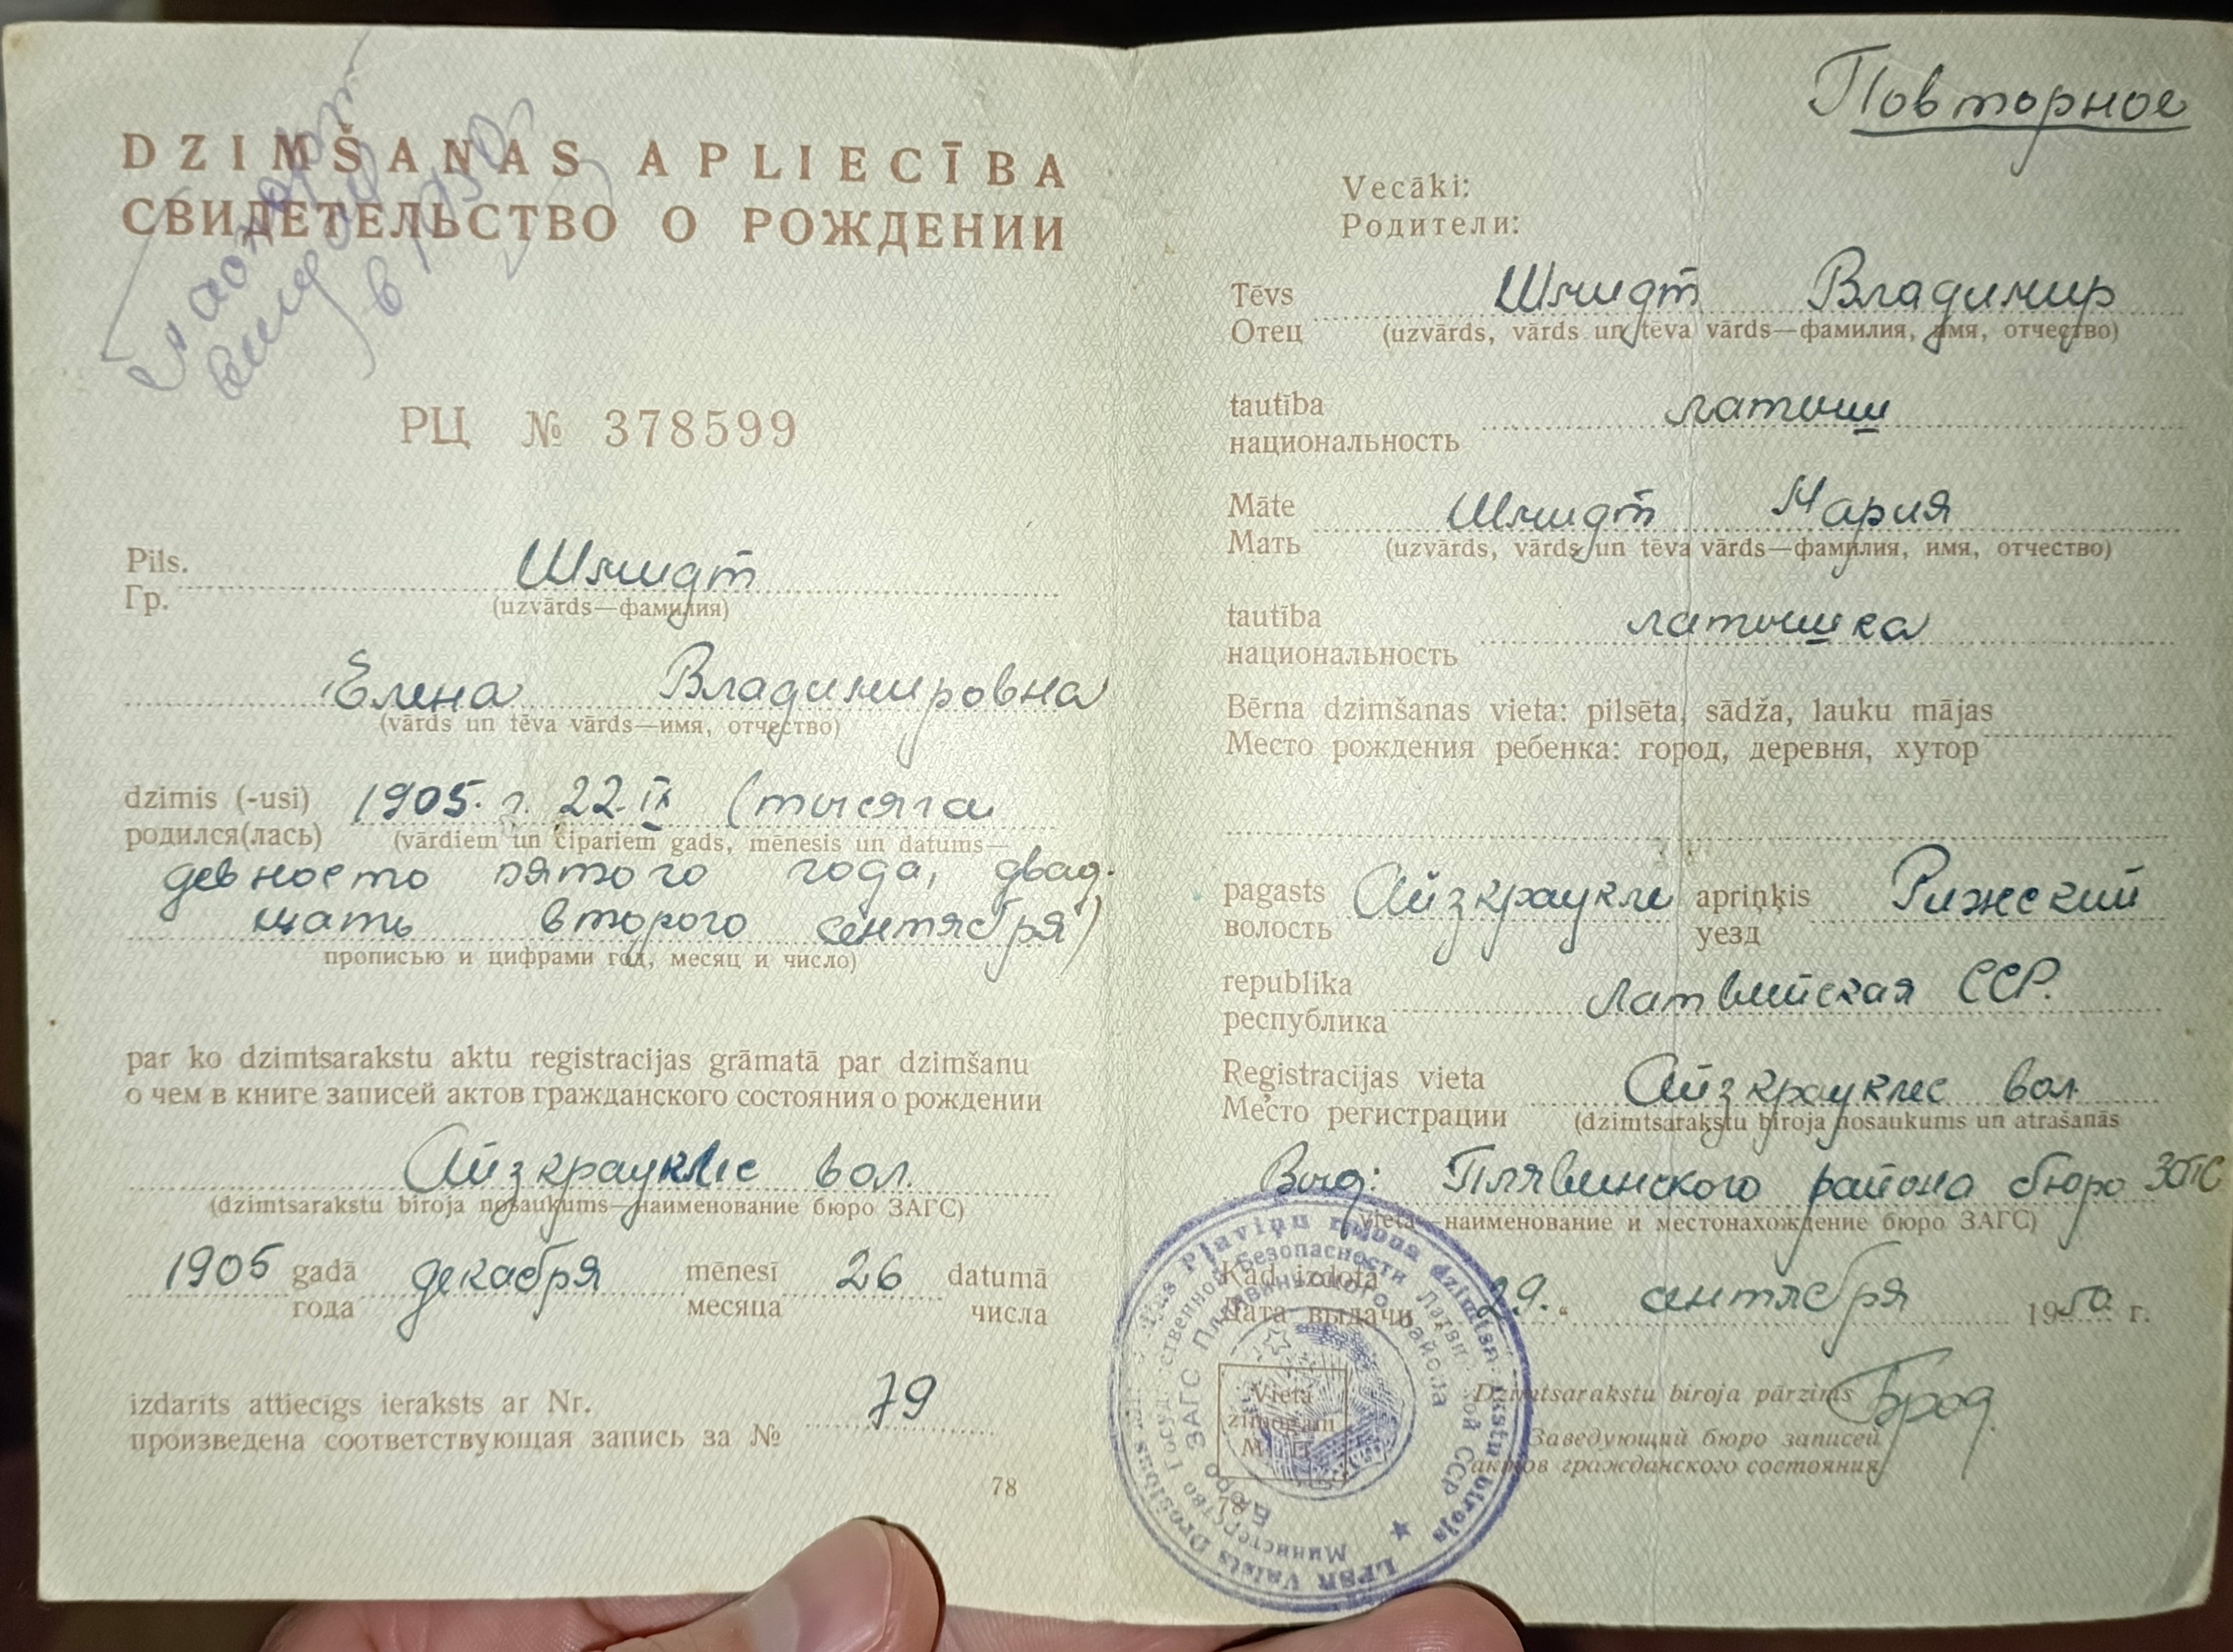 DZIMŠANAS APLIECĪBA
СВИДЕТЕЛЬСТВО О РОЖДЕНИИ
РЦ № 378599
Pils.
Гр.
Шмидт
(uzvārds—фамилия)
Елена Владимировна
(vārds un tēva vārds—имя, отчество)
dzimis (-usi)
родился(лась)
1905 г. 22.IX (тысяча
(vārdiem un cipariem gads, mēnesis un datums—
девносто пятого года, двад-
цать второго сентября)
прописью и цифрами год, месяц и число)
par ko dzimtsarakstu aktu registracijas grāmatā par dzimšanu
о чем в книге записей актов гражданского состояния о рождении
Айзкрауклес вол.
(dzimtsarakstu biroja nosaukums—наименование бюро ЗАГС)
1905 gadā декабря mēnesī 26 datumā
года месяца числа
izdarīts attiecīgs ieraksts ar Nr.
произведена соответствующая запись за №
79
78
Повторное
Vecāki:
Родители:
Tēvs
Отец
Шмидт Владимир
(uzvārds, vārds un tēva vārds—фамилия, имя, отчество)
tautība
национальность
латыш
Māte
Мать
Шмидт Мария
(uzvārds, vārds un tēva vārds—фамилия, имя, отчество)
tautība
национальность
латышка
Bērna dzimšanas vieta: pilsēta, sādža, lauku mājas
Место рождения ребенка: город, деревня, хутор
pagasts Айзкраукле apriņķis Рижский
волость уезд
republika
республика
Латвийская ССР.
Reģistracijas vieta
Место регистрации
Айзкрауклес вол
(dzimtsarakstu biroja nosaukums un atrašanās
Выд: Плявинского района бюро ЗАГС
vieta—наименование и местонахождение бюро ЗАГС)
Kad izdota
Дата выдачи
29. сентября 1950 г.
Vieta
zīmogam
М. П.
Dzimtsarakstu biroja pārzinis
Заведующий бюро записей
актов гражданского состояния
Брод
78
LPSR Valsts Drošības Ministrijas Pļaviņu rajona dzimtsarakstu birojs
Министерство Государственной Безопасности Латвийской ССР
Бюро ЗАГС Плявиньского района